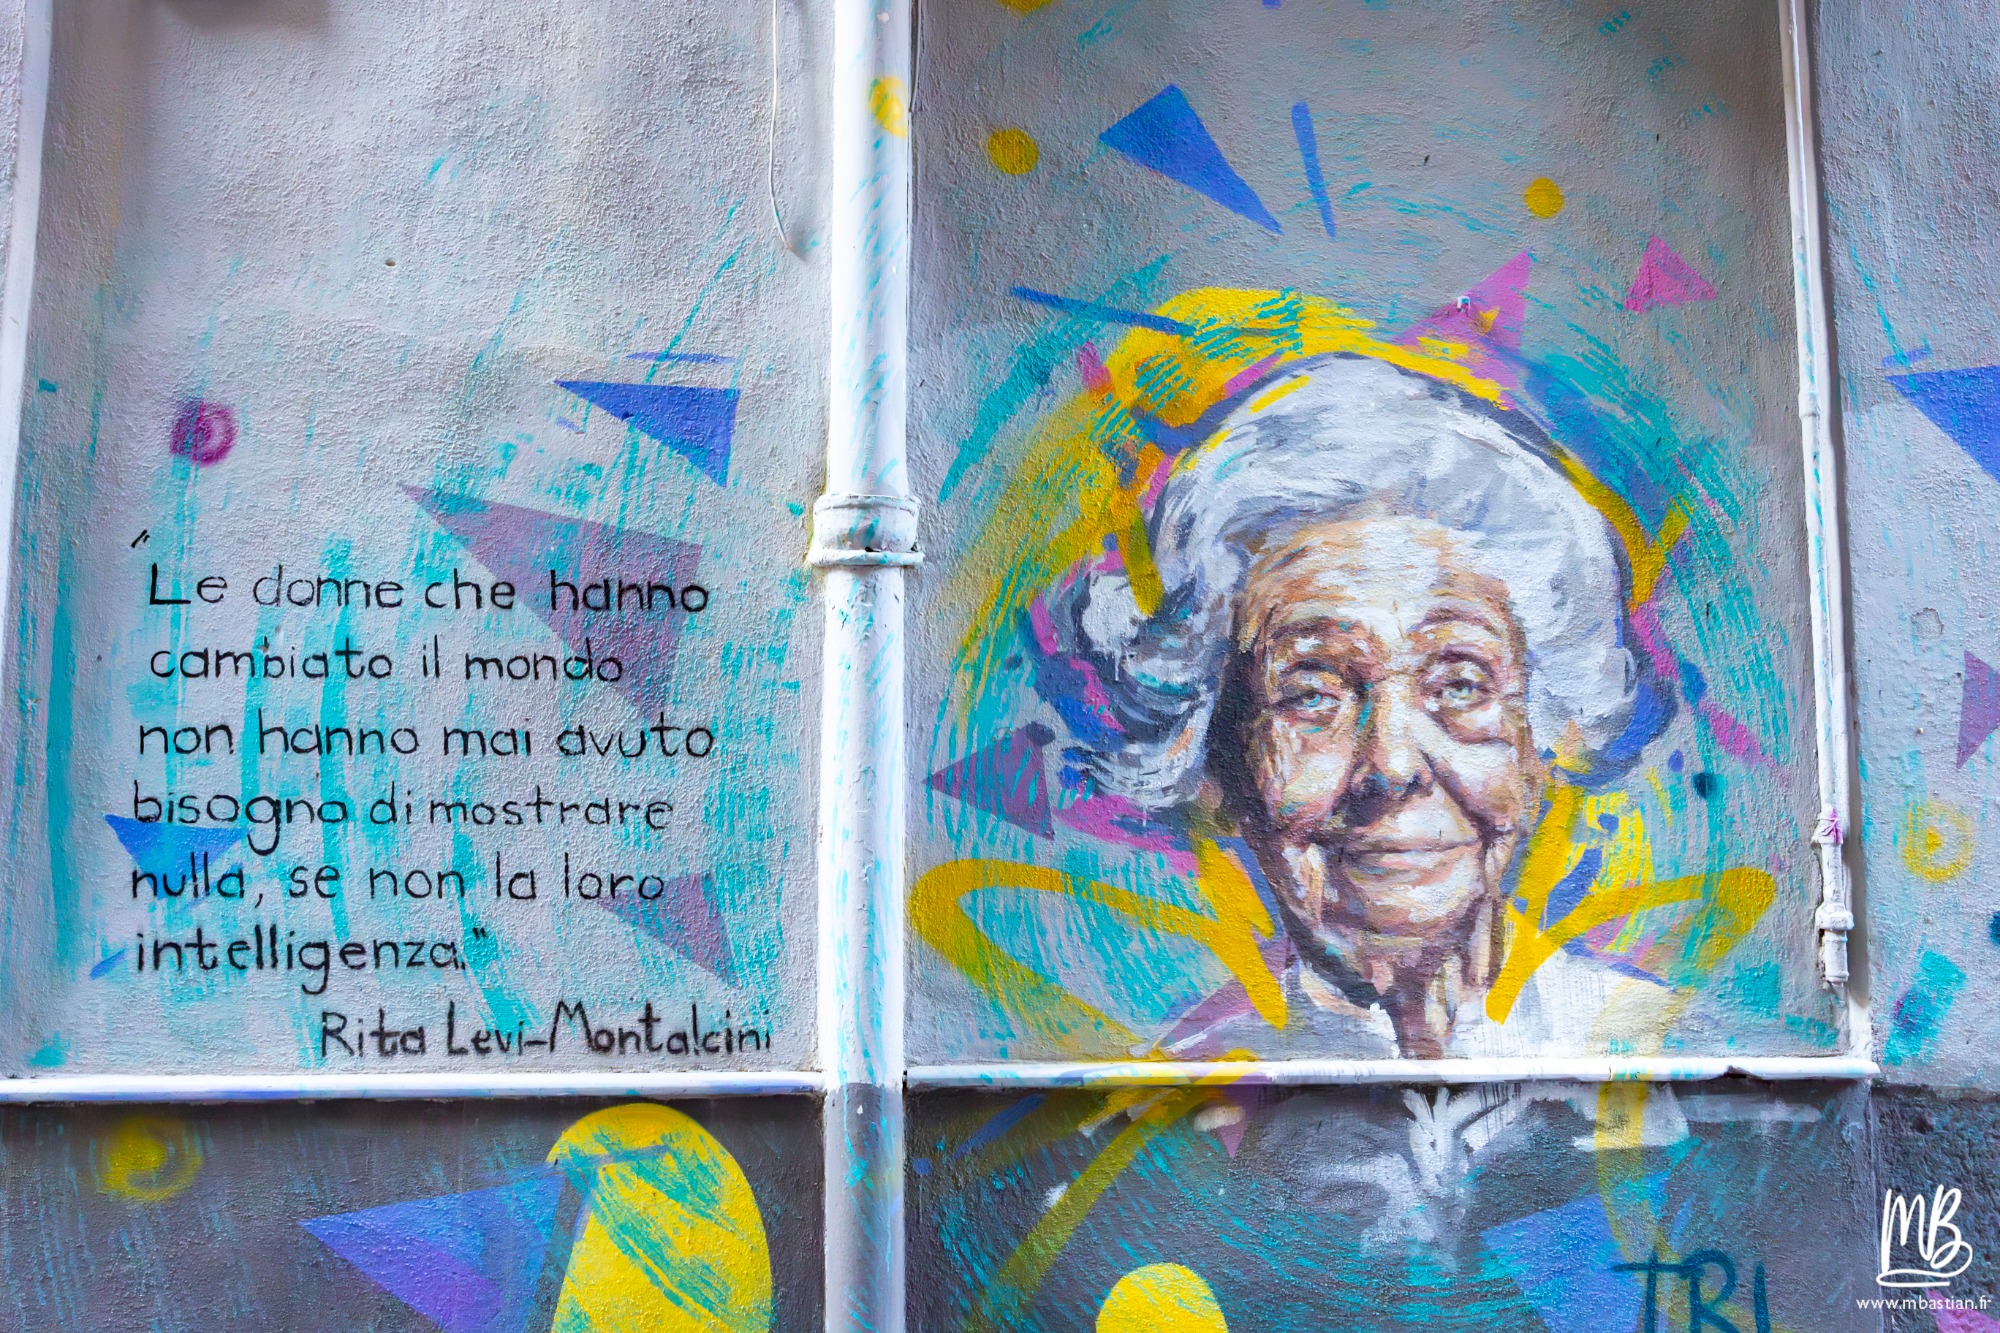 "Le donne che hanno
cambiato il mondo
non hanno mai avuto
bisogno di mostrare
nulla, se non la loro
intelligenza."
Rita Levi-Montalcini
MB
www.mbastian.fr